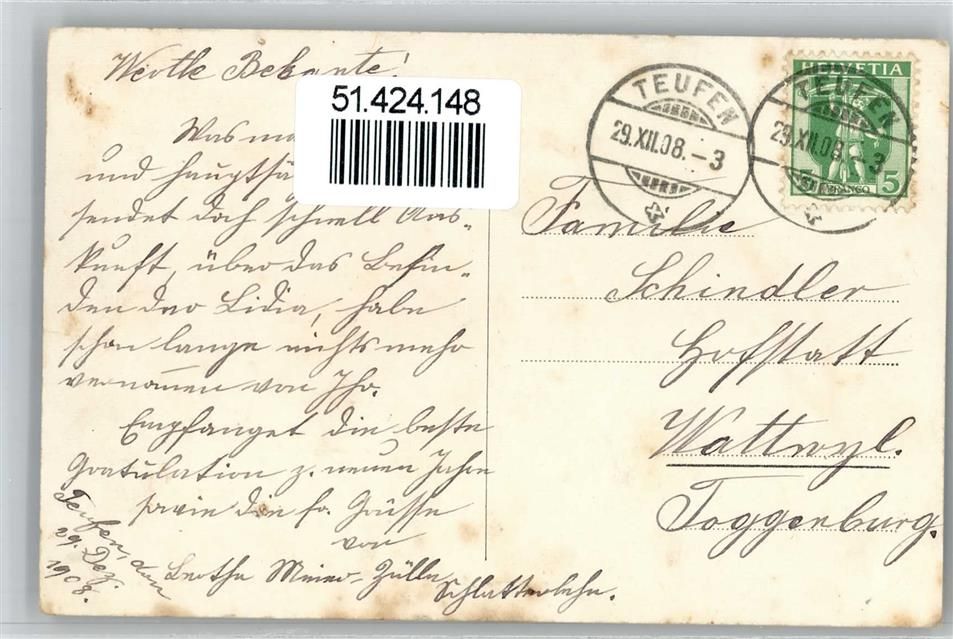 Werthe Bekante!
51.424.148
Was ma
und hauptsä
sendet doch schnell Aus-
kunft, über das Befin-
den der Lidia, habe
schon lange nichts mehr
vernommen von Ihr.
Empfanget die beste
Gratulation z. neuen Jahre
sowie die fr. Grüsse
von
Bertha Meier-Zülle
Schlatterlehn.
Teufen, den
29. Dez.
1908.
TEUFEN
29.XII.08.-3
TEUFEN
29.XII.08.-3
HELVETIA
FRANCO
5
Familie
Schindler
Hofstatt
Wattwyl.
Toggenburg.